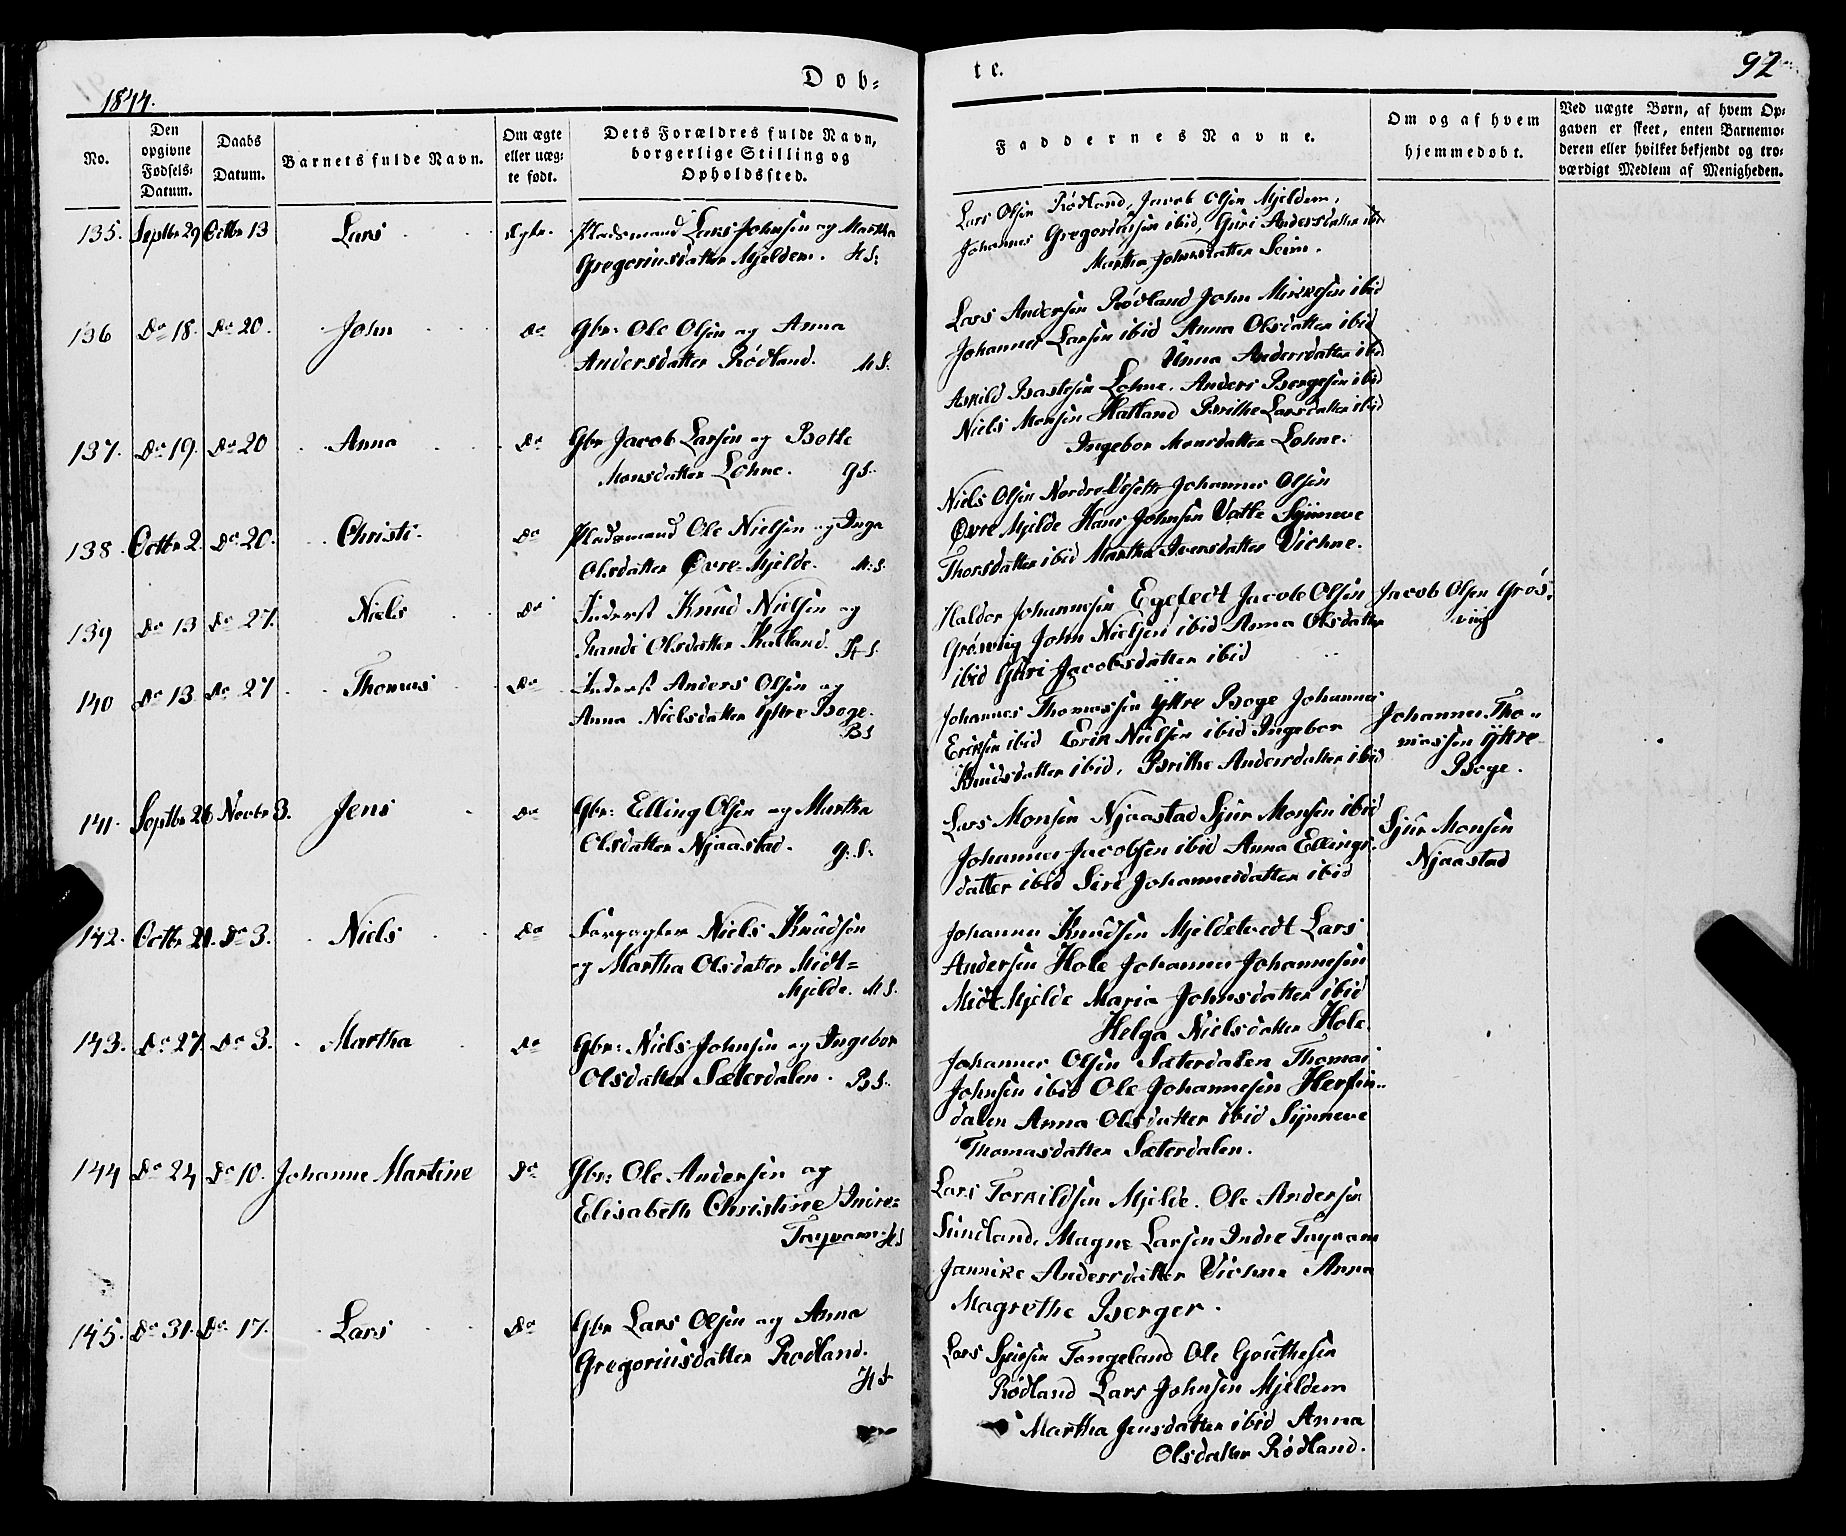 1844.
Døb-
te.
92
No.
Den opgivne Fødsels-Datum.
Daabs Datum.
Barnets fulde Navn.
Om ægte eller uæg-te født.
Dets Forældres fulde Navn, borgerlige Stilling og Opholdssted.
Faddernes Navne.
Om og af hvem hjemmedøbt.
Ved uægte Børn, af hvem Op-gaven er skeet, enten Barnemo-deren eller hvilket bekjendt og tro-værdigt Medlem af Menigheden.
135. Septbr 29 Octbr 13 Lars Ægte. Pladsmand Lars Johnsen og Martha
Gregoriusdatter Mjeldem. H S:
Lars Olsen Rødland, Jacob Olsen Mjeldem,
Johannes Gregoriussen ibid, Guri Andersdatter ibid
Martha Johnsdatter Seim.
136 Do 18. Do 20. John Do Gbr: Ole Olsen og Anna
Andersdatter Rødland. H S.
Lars Andersen Rødland John Mikkelsen ibid
Johannes Larsen ibid Anna Olsdatter ibid
Anna Andersdatter ibid
137. Do 19. Do 20 Anna Do Gbr Jacob Larsen og Botle
Monsdatter Lohne. G S.
Askild Baastesen Lohne. Anders Bergesen ibid
Niels Monsen Hatland Brithe Larsdatter ibid
Ingebor Monsdatter Lohne.
138. Octbr 2. Do 20. Christi Do Pladsmand Ole Nielsen og Inga
Olsdatter Øvre-Mjelde. H. S.
Niels Olsen Nordre Johannes Olsen
Øvre Mjelde Hans Johnsen Vatle Synneve
Thorsdatter ibid Martha Iversdatter Vichne.
139 Do 13 Do 27. Niels Do Inderst Knud Nielsen og
Randi Olsdatter Kalland. H S.
Haldor Johannesen Egetvedt Jacob Olsen
Grøsviig John Nielsen ibid Anna Olsdatter
ibid Guri Jacobsdatter ibid
Jacob Olsen Grøs-
viig
140 Do 13. Do 27 Thomas Do Inderst Anders Olsen og
Anna Nielsdatter Yttre Boge.
B S
Johannes Thomassen Yttre Boge Johannes
Eriksen ibid Erik Nielsen ibid Ingebor
Knudsdatter ibid, Brithe Andersdatter ibid
Johannes Tho-
massen Yttre
Boge.
141. Septbr 26 Novbr 3. Jens Do Gbr: Elling Olsen og Martha
Olsdatter Njaastad. G. S.
Lars Monsen Njaastad Sjur Monsen ibid
Johannes Jacobsen ibid Anna Ellings-
datter ibid Siri Johannesdatter ibid
Sjur Monsen
Njaastad
142. Octbr 21. Do 3. Niels Do Forpagter Niels Knudsen
og Martha Olsdatter Midt-
Mjelde. H S.
Johannes Knudsen Mjeldetvedt Lars
Andersen Hole Johannes Johannesen
Midt Mjelde Maria Johnsdatter ibid
Helga Nielsdatter Hole.
143. Do 27. Do 3. Martha Do Gbr: Niels Johnsen og Ingebor
Olsdatter Sæterdalen. B S.
Johannes Olsen Sæterdalen Thomas
Johnsen ibid Ole Johannesen Herfin-
dalen Anna Olsdatter ibid Synneve
Thomasdatter Sæterdalen.
144 Do 24 Do 10. Johanne Martine Do Gbr: Ole Andersen og
Elisabeth Christine Indre-
H S
Lars Torkildsen Mjelde. Ole Andersen
Sundland. Magne Larsen Indre
Jannike Andersdatter Vichne Anna
Magrethe Berger.
145. Do 31. Do 17. Lars Do Gbr Lars Olsen og Anna
Gregoriusdatter Rødland.
H S
Lars Sjursen Tongeland Ole Gouthesen
Rødland Lars Johnsen Mjeldem
Martha Jensdatter ibid Anna
Olsdatter Rødland.